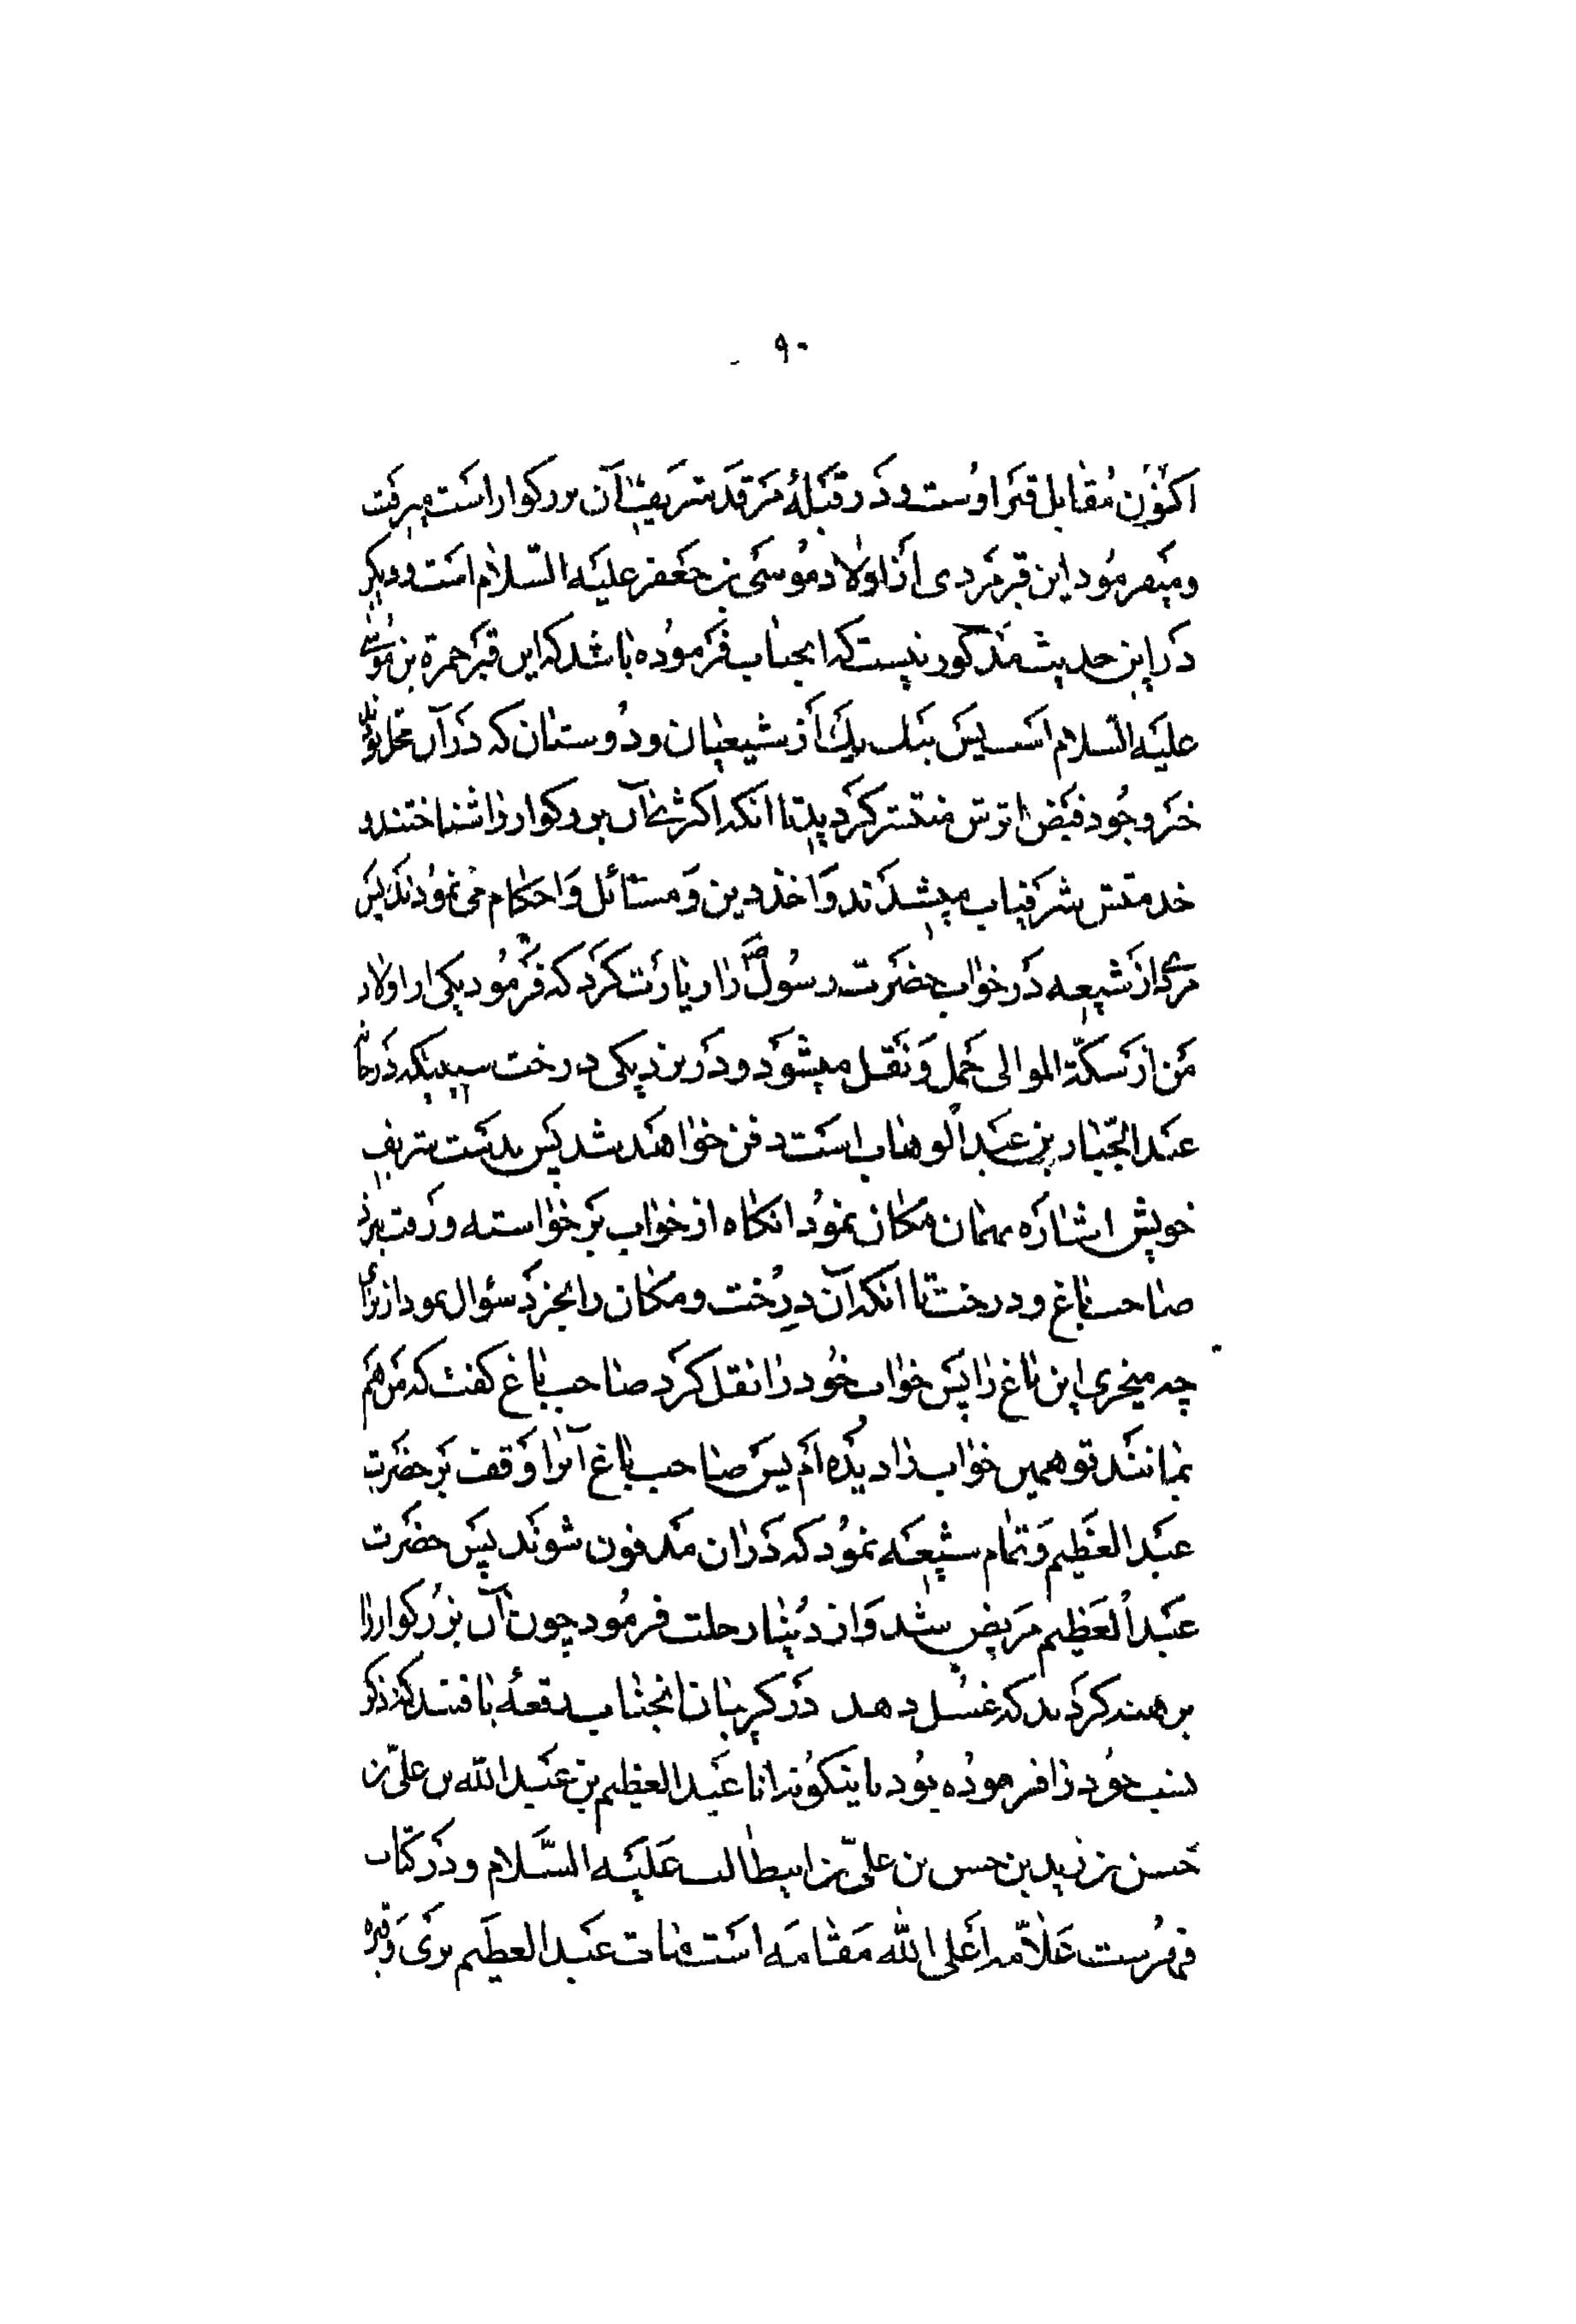 ۹۰
اکنون مقابل قبر اوست و در قبلهٔ مرقد شریف آن بزرگوار است میرفت
و میفرمود این قبر مردی از اولاد موسی بن جعفر علیه السلام است و دیگر
در این حدیث مذکور نیست که آنجناب فرموده باشد که این قبر حمزة بن موسی
علیه السلام است پس بیک بیک از شیعیان و دوستان که در آن محل بودند
خبر وجود فیض اثرش منتشر گردید تا آنکه اکثری آن بزرگوار را شناختند و
خدمتش شرفیاب میشدند و اخذ دین و مسائل و احکام می نمودند پس
مردی از شیعه در خواب حضرت رسول ص را زیارت کرد که فرمود یکی از اولاد
من از سکة الموالی حمل و نقل میشود و در نزدیکی درخت سیبیکه در خانه
عبد الجبار بن عبد الوهاب است دفن خواهند شد پس بدست شریف
خویش اشاره بهمان مکان نمود انکاه از خواب برخواسته و رفت بنزد
صاحب باغ و درخت تا آنکه آن درخت و مکان را بخرد سؤال نمود از برای
چه میخری این باغ را پس خواب خود را نقل کرد صاحب باغ کفت که من هم
بمانند تو همین خواب را دیده ام پس صاحب باغ آنرا وقف بر حضرت
عبد العظیم و تمام شیعه نمود که در ان مدفون شوند پس حضرت
عبد العظیم مریض شد و از دنیا رحلت فرمود چون آن بزرکوار را
برهنه کردند که غسل دهند در کریبان انجناب رقعهٔ یافتند که ذکر
نسب خود را فرموده بود باینکونه انا عبد العظیم بن عبد الله بن علی بن
حسن بن زید بن حسن بن علی بن ابیطالب علیه السلام و در کتاب
فهرست علامه اعلی الله مقامه است مات عبد العظیم بری و قبره